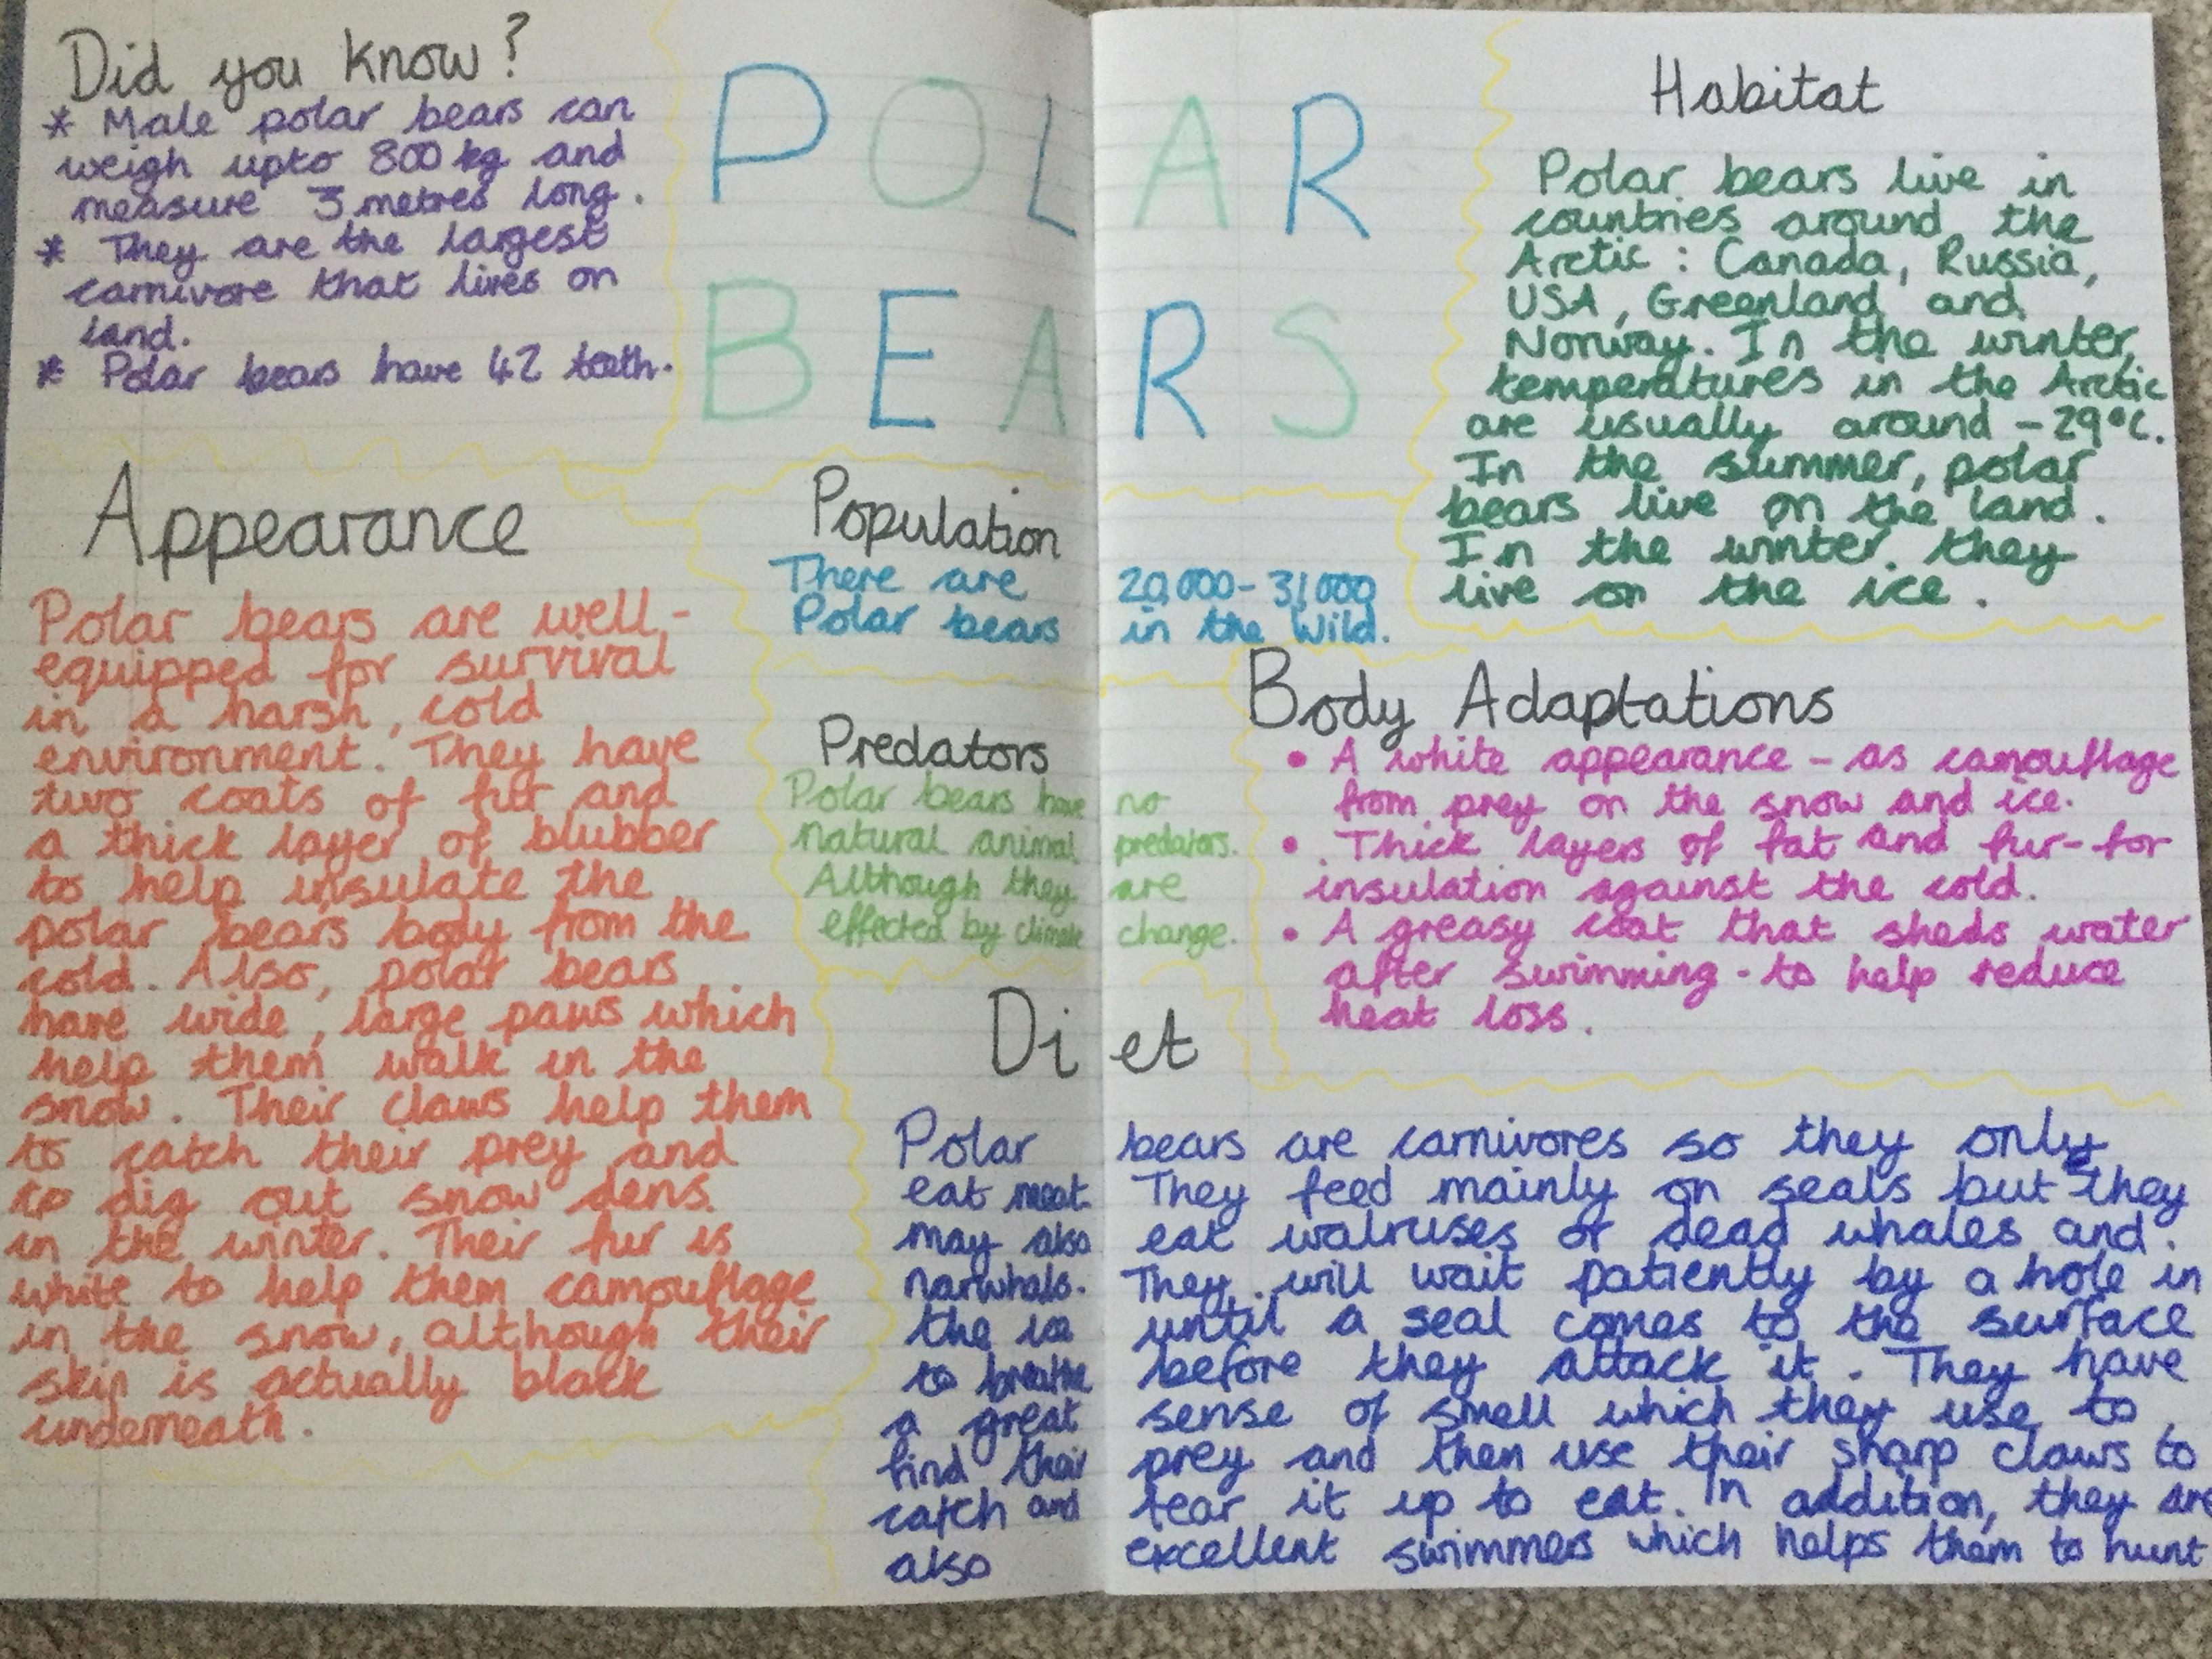 Did you know?
* Male polar bears can
weigh upto 800kg and
measure 3 metres long.
* They are the largest
carnivore that lives on
land.
* Polar bears have 42 teeth.
POLAR
BEARS
Habitat
Polar bears live in
countries around the
Arctic: Canada, Russia,
USA, Greenland and
Norway. In the winter,
temperatures in the Arctic
are usually around -29°C.
In the summer, polar
bears live on the land.
In the winter. they
live on the ice.
Appearance
Polar bears are well-
equipped for survival
in a harsh, cold
environment. They have
two coats of fur and
a thick layer of blubber
to help insulate the
polar bear's body from the
cold. Also, polar bears
have wide, large paws which
help them walk in the
snow. Their claws help them
to catch their prey and
to dig out snow dens.
in the winter. Their fur is
white to help them camouflage
in the snow, although their
skin is actually black
underneath.
Population
There are 20,000-31,000
Polar bears in the wild.
Predators
Polar bears have no
natural animal predators.
Although they are
effected by climate change.
Body Adaptations
• A white appearance - as camouflage
from prey on the snow and ice.
• Thick layers of fat and fur-for
insulation against the cold.
• A greasy coat that sheds water
after swimming - to help reduce
heat loss.
Diet
Polar bears are carnivores so they only
eat meat. They feed mainly on seals but they
may also eat walruses or dead whales and
narwhals. They will wait patiently by a hole in
the ice until a seal comes to the surface
to breathe before they attack it. They have
a great sense of smell which they use to
find their prey and then use their sharp claws to
catch and tear it up to eat. In addition, they are
also excellent swimmers which helps them to hunt